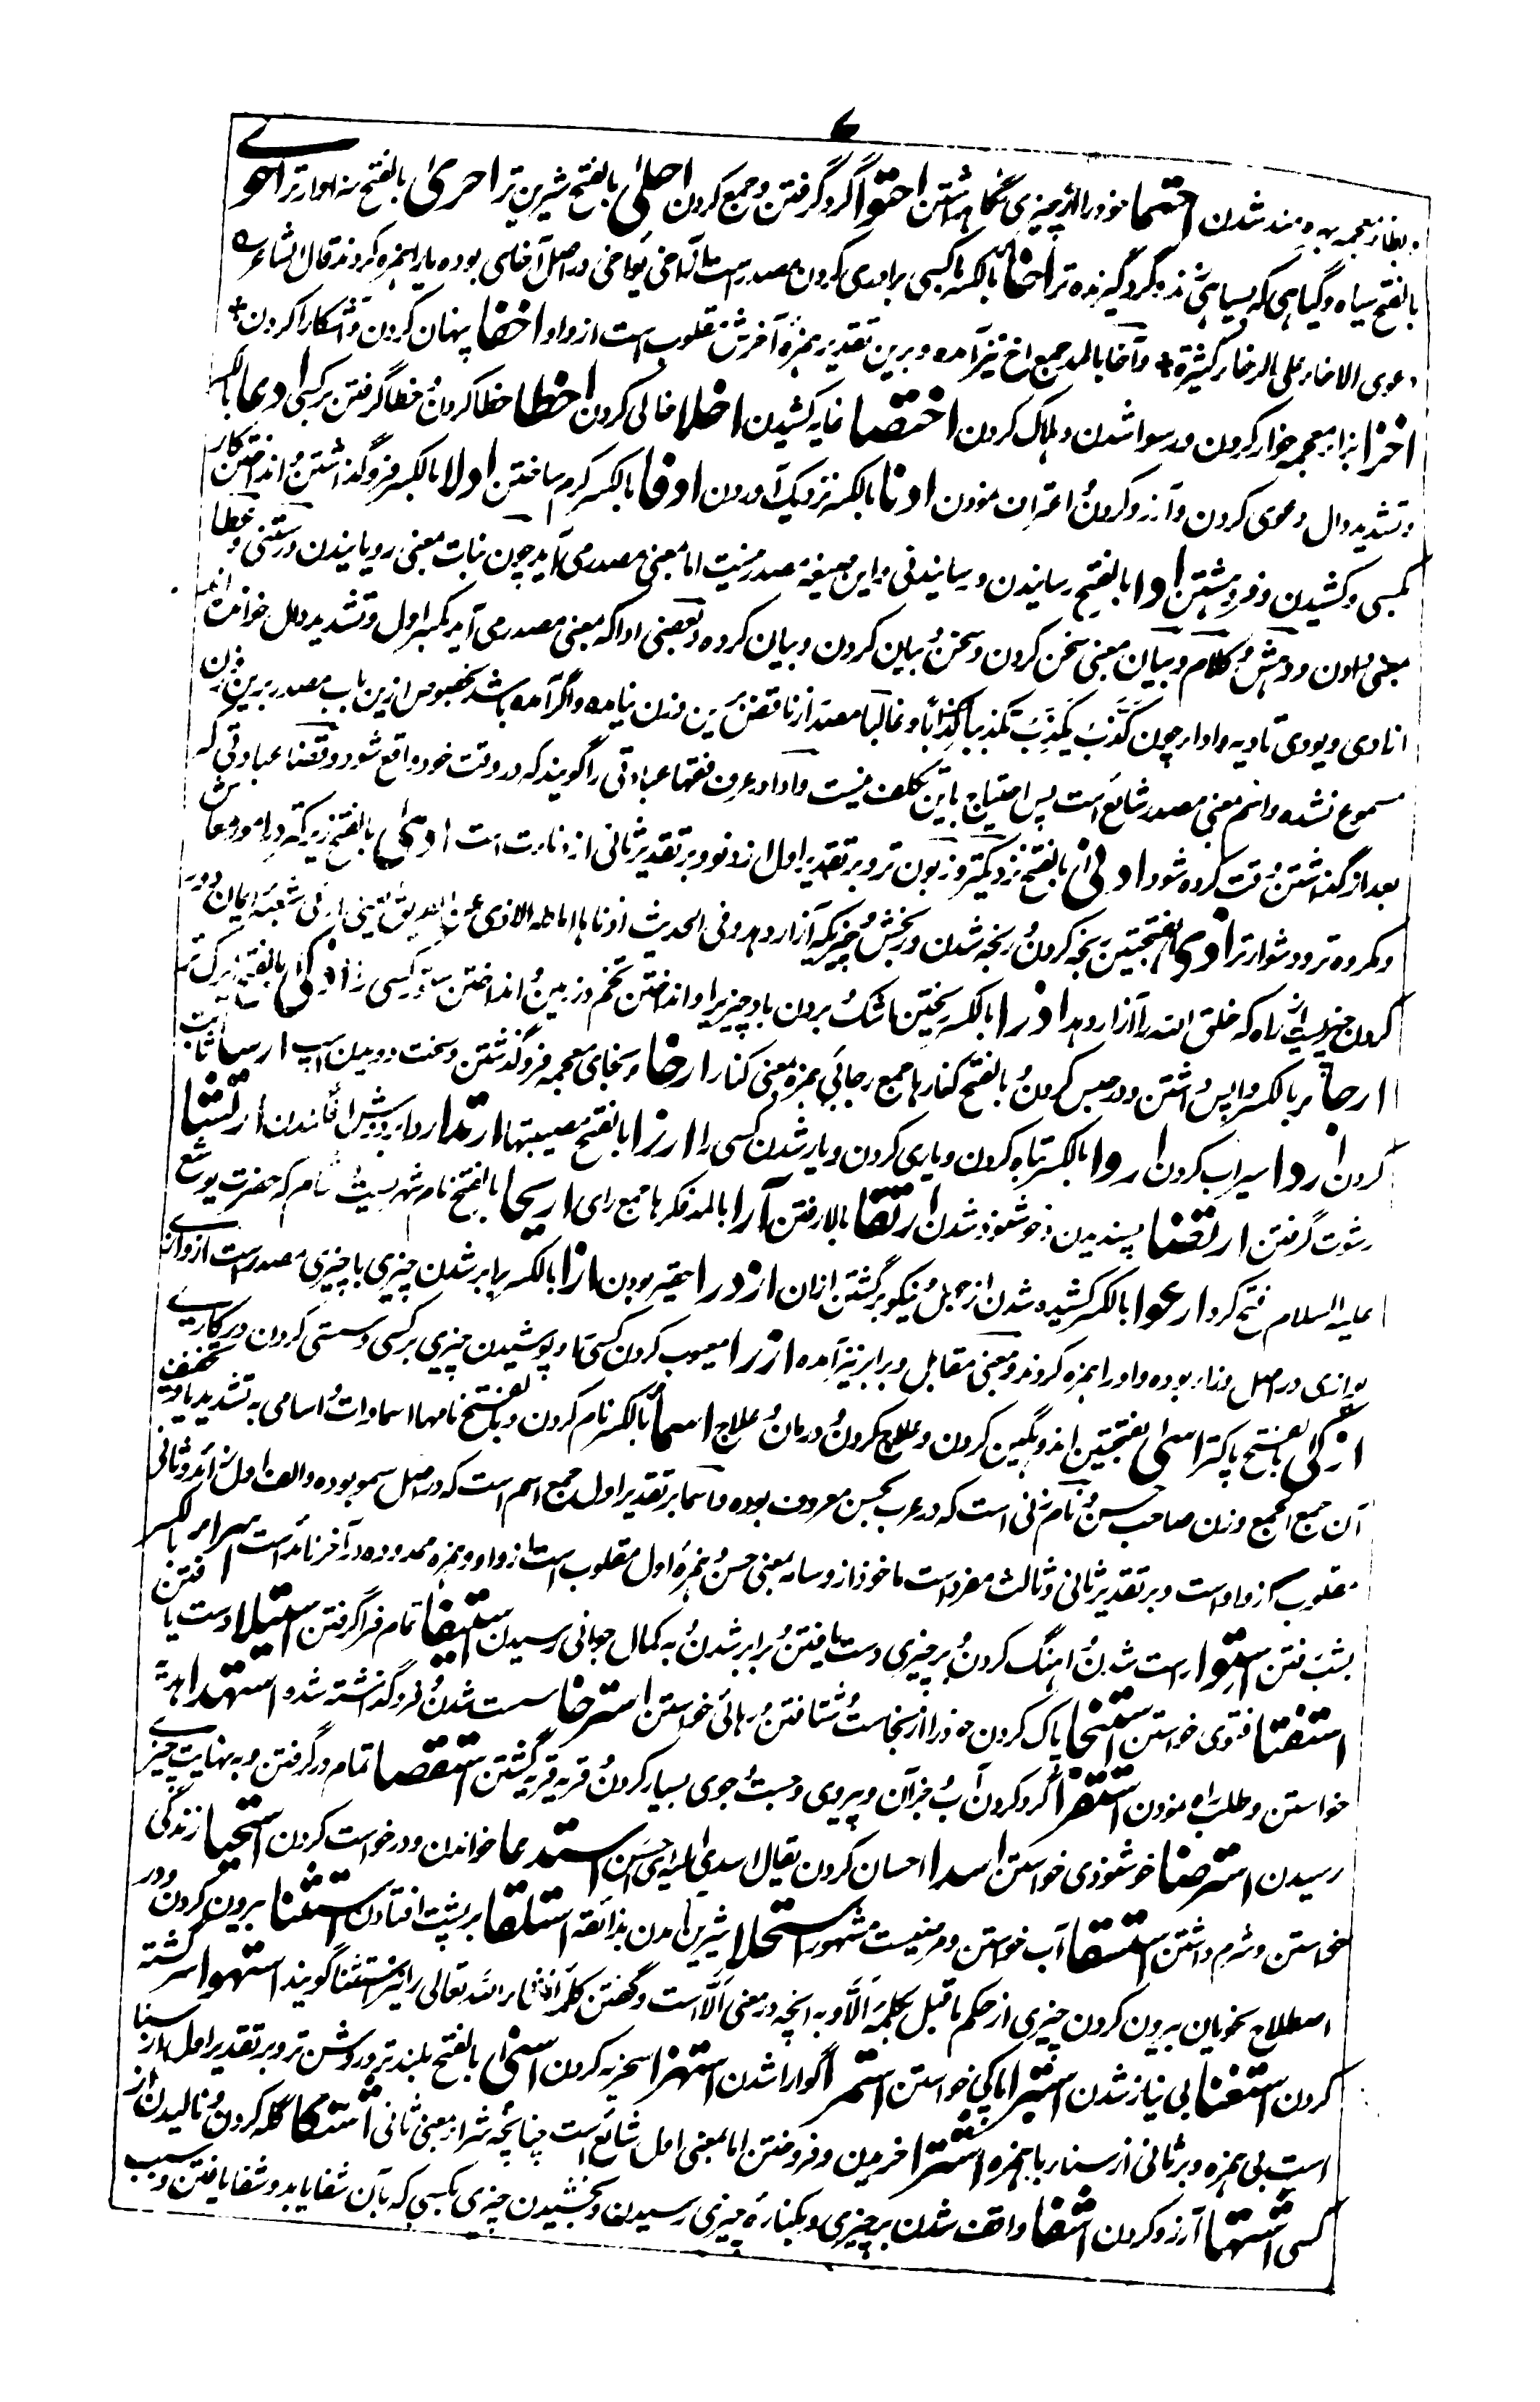 ۷
بظاء معجمه بهره مند شدن احتما خود را از چیزی نگاهداشتن احتوا گرد گرفتن و جمع کردن احلیٰ بالفتح شیرین تر احریٰ بالفتح سزاوارتر احوے
بالفتح سیاه و گیاهی که بسیاهی زند و گرد گیرنده تر اخا بالکسر با کسی برادری کردن مصدرست تآخی یواخی در اصل آن اخای بوده یا را همزه کردند قال الشاعر
دعوی الاخاء علی الرخاء کثیرة و آخا بالمد جمع اخ نیز آمده و برین تقدیر همزهٔ آخرش مقلوب است از واو اخفا پنهان کردن و آشکارا کردن
اخزا بزاء معجمه خوار کردن و رسوا شدن و هلاک کردن اختصا خایه کشیدن اخلا خالی کردن اخطا خطا کردن و خطا گرفتن بر کسی ادعا بالکسر
و تشدید دال دعوی کردن و آرزو کردن و اعتراف نمودن ادنا بالکسر نزدیک آوردن ادفا بالکسر گرم ساختن ادلا بالکسر فرو گذاشتن و انداختن کار
بکسی و کشیدن و فروهشتن ادا بالفتح رسانیدن و رسانیدنی و این صیغه مصدر نیست اما بمعنی مصدر می آید چون نبات بمعنی رویانیدن و رستنی و عطا
بمعنی دادن و دهش و کلام و بیان بمعنی سخن کردن و سخن و بیان کردن و بیان کرده و بعضی ادا که بمعنی مصدر می آید بکسر اول و تشدید دال خوانند
ادی و یودی تادیه و اداء چون کذّب یکذّب تکذیبا کذّابا و غالبا مصدر از ناقص برین وزن نیامده و اگر آمده باشد بخصوص ازین باب مصدر برین وزن
مسموع نشده و اسم بمعنی مصدر شایع است پس احتیاج باین تکلف نیست و ادا در عرف فقها عبادتی را گویند که در وقت خود واقع شود و قضا عبادتی که
بعد از گذاشتن وقت کرده شود ادنیٰ بالفتح نزدیکتر و زبون تر و بر تقدیر اول از دنو و بر تقدیر ثانی از دناءت است ادهیٰ بالفتح زیرک تر در امور معاش
و مکروه تر و دشوارتر اذیٰ بفتحتین رنجه کردن و رنجه شدن و رنجش و چیزیکه آزار دهد و فی الحدیث ادناها اماطة الاذی عن الطریق یعنی ادنی شعبه ایمان دور
کردن چیزیست از راه که خلق الله را آزار دهد اذرا بالکسر ریختن اشک و بردن باد چیزیرا و انداختن تخم در زمین و انداختن
ارجاء بالکسر واپس داشتن و در حبس کردن و بالفتح کنارها جمع رجا بی همزه بمعنی کنار ارخا بخای معجمه فرو گذاشتن و سخت دویدن اسپ ارسا ثابت
کردن اروا سیراب کردن اردا بالکسر تباه کردن و یاری کردن و یار شدن کسی را ارزا بالفتح مصیبتها ارتدا ردا بر دوش افگندن ارتشا
رشوت گرفتن ارتضا پسندیدن و خوشنود شدن ارتقا بالا رفتن آرا بالمد فکرها جمع رای اریحا بالفتح نام شهریست بشام که حضرت یوشع
علیه السلام فتح کرد ارعوا بالکسر کشیده شدن از جهل و نیکو برگشتن ازان ازدرا حقیر بودن ازا بالکسر برابر شدن چیزی با چیزی مصدرست از وازی
یوازی در اصل وزاء بوده واو را همزه کردند و بمعنی مقابل و برابر نیز آمده ازرا معیوب کردن کسی را و پوشیدن چیزی بر کسی و سستی کردن در کاری
ازکیٰ بالفتح پاکتر اسیٰ بفتحتین اندوهگین کردن و علاج کردن و درمان و علاج اسما بالکسر نام کردن و بالفتح نامها اسماوات و اسامی به تشدید یا و تخفیف
آن جمع الجمع و زن صاحب حسن و نام زنی است که در عرب بحسن معروف بوده و اسما بر تقدیر اول جمع اسم است که در اصل سمو بوده و الف اول زائد و ثانی
مقلوب از واو است و بر تقدیر ثانی و ثالث مفرد است ماخوذ از وسامه بمعنی حسن و همزهٔ اول مقلوب است از واو و همزه ممدوده در آخر زائد است اسراء بالکسر
بشب رفتن استوا راست شدن و آهنگ کردن و بر چیزی دست یافتن و برابر شدن و به کمال جوانی رسیدن استیفا تمام فرا گرفتن استیلا دست یافتن
استفتا فتوی خواستن استنجا پاک کردن خود را از نجاست و شتافتن و رهائی خواستن استرخا سست شدن و فرو گذاشته شدن استهدا هدیه
خواستن و طلب راه نمودن استقرا گرد کردن آب و جز آن و پیروی و جست و جوی بسیار کردن و قریه قریه گشتن استقصا تمام در گرفتن و به نهایت چیزے
رسیدن استرضا خوشنودی خواستن اسدا احسان کردن یقال اسدی الیه ای احسن استدعا خواندن و درخواست کردن استحیا زندگی
خواستن و شرم داشتن استسقا آب خواستن و مرضیست مشهور استحلا شیرین آمدن بذائقه استلقا بر پشت افتادن استثنا بیرون کردن و در
اصطلاح نحویان بیرون کردن چیزی از حکم ما قبل بکلمهٔ اِلّا و به آنچه در معنی اِلّا است و گفتن کلمه انشاء الله تعالی را نیز استثنا گویند استهوا سرگشته
کردن استغنا بی نیاز شدن استبرا پاکی خواستن استمرا گوارا شدن استهزا سخریه کردن اسنیٰ بالفتح بلندتر و روشن تر و بر تقدیر اول از سنا
است بی همزه و بر ثانی از سناء با همزه اشترا خریدن و فروختن اما بمعنی اول شائع است چنانچه شرا بمعنی ثانی اشتکا گله کردن و نالیدن از
کسی اشتها آرزو کردن اشفا واقف شدن بر چیزی و بکنارهٔ چیزی رسیدن و بخشیدن چیزی بکسی که بآن شفا یابد و شفا یافتن و بسبب